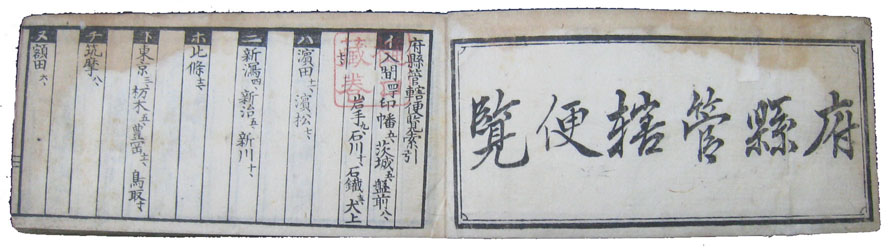 府縣管轄便覽
府縣管轄便覧索引
イ 入間四、印幡五、茨城五、盤前八、
岩手九、石川十、石鐡 犬上
ハ 濱田 濱松七、
ニ 新潟四、新治五、新川十一、
ホ 北條
ト 東京三、栃木五、豊岡 鳥取
チ 筑摩八、
ヌ 額田六、